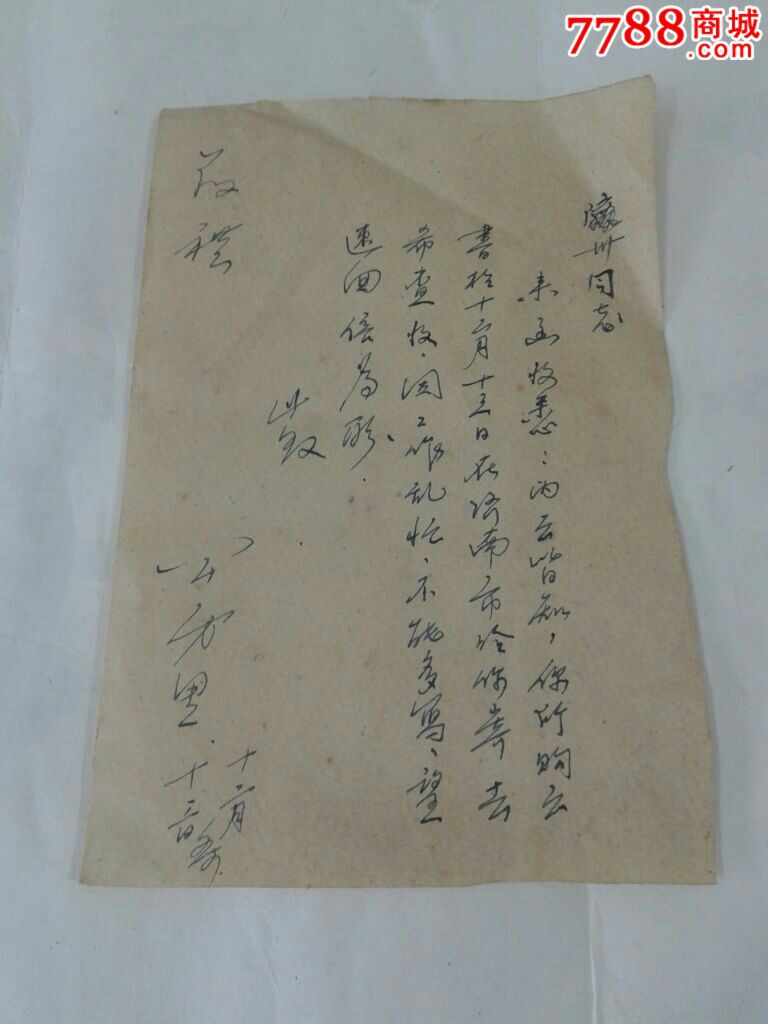 7788商城
.com
同志
来函收悉：内云皆知，你所购云
书于十二月十三日在济南市给你寄去
希查收、因工作乱忙、不能多写、望
速回信为盼、
此致
敬礼
十二月
十三日